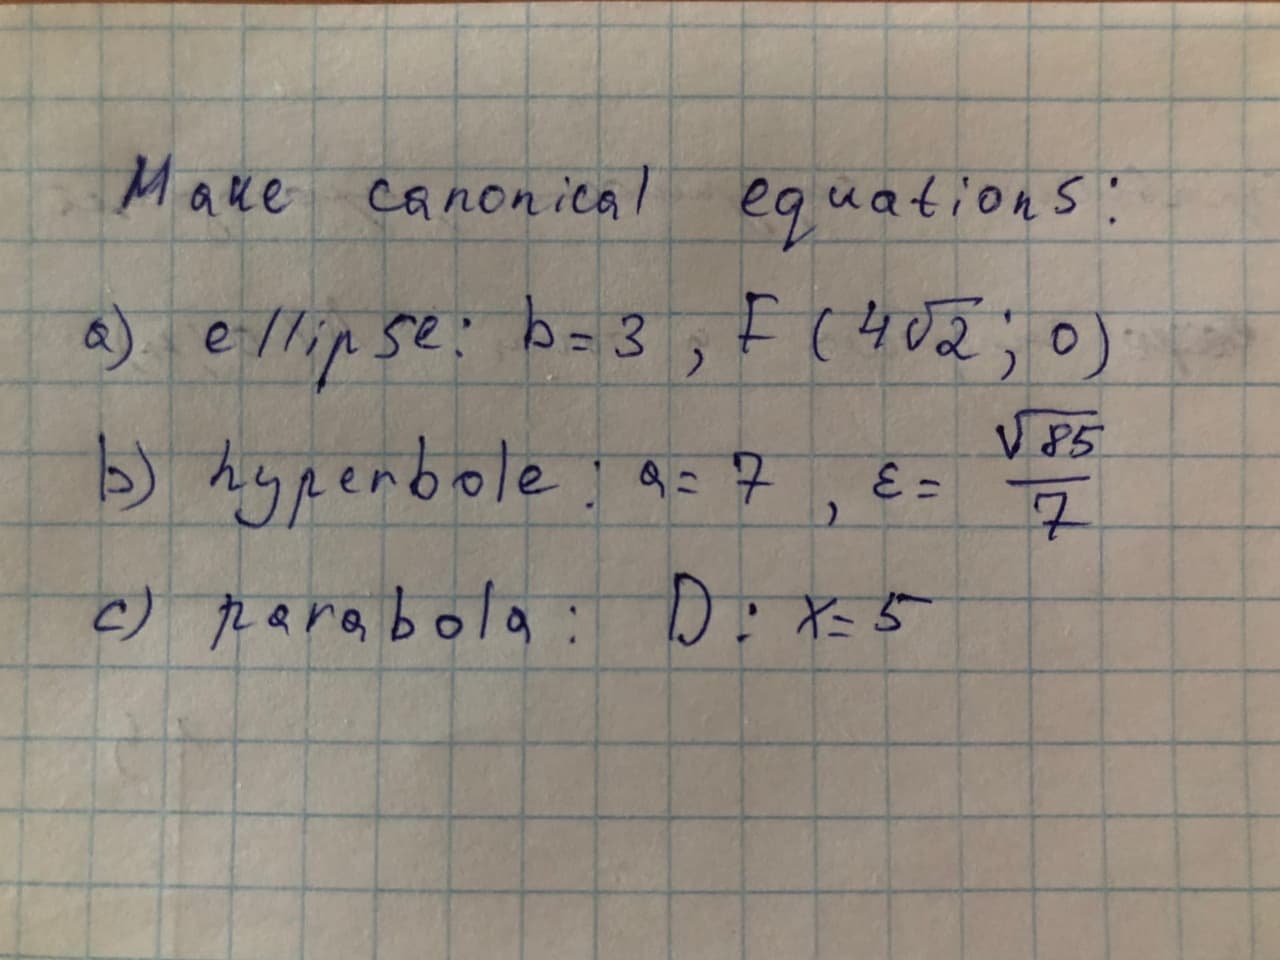 Make canonical equations:
a) ellipse: b = 3, F (4√2; 0)
b) hyperbole: a = 7, ε = √85/7
c) parabola: D: x = 5